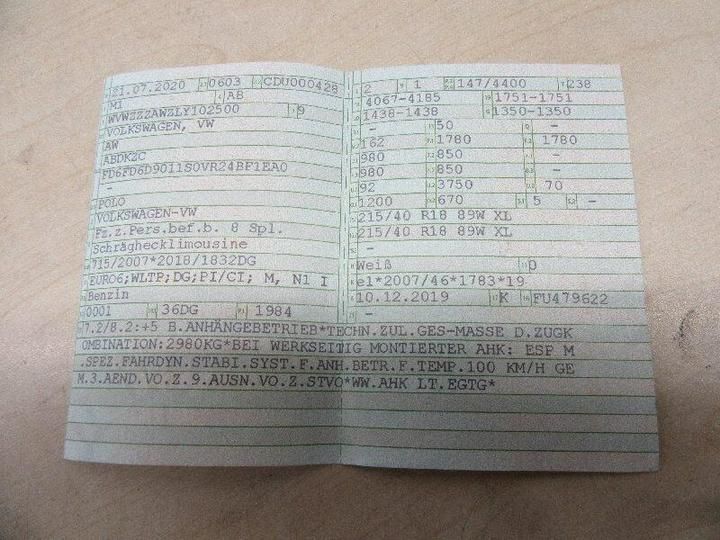 21.07.2020 0603 CDU000428
M1 AB
WVWZZZAWZLY102500 9
VOLKSWAGEN, VW
AW
ABDKZC
FD6FD6D9011S0VR24BF1EA0
-
POLO
VOLKSWAGEN-VW
Fz.z.Pers.bef.b. 8 Spl.
Schräghecklimousine
715/2007*2018/1832DG
EURO6;WLTP;DG;PI/CI; M, N1 I
Benzin
0001 36DG 1984
2 1 147/4400 238
4067-4185 1751-1751
1438-1438 1350-1350
- 50 -
162 1780 1780
980 850 -
980 850 -
92 3750 70
1200 670 5 -
215/40 R18 89W XL
215/40 R18 89W XL
-
Weiß 0
e1*2007/46*1783*19
10.12.2019 K FU479622
-
7.2/8.2:+5 B.ANHÄNGEBETRIEB*TECHN.ZUL.GES-MASSE D.ZUGK
OMBINATION:2980KG*BEI WERKSEITIG MONTIERTER AHK: ESP M
.SPEZ.FAHRDYN.STABI.SYST.F.ANH.BETR.F.TEMP.100 KM/H GE
M.3.AEND.VO.Z.9.AUSN.VO.Z.STVO*WW.AHK LT.EGTG*